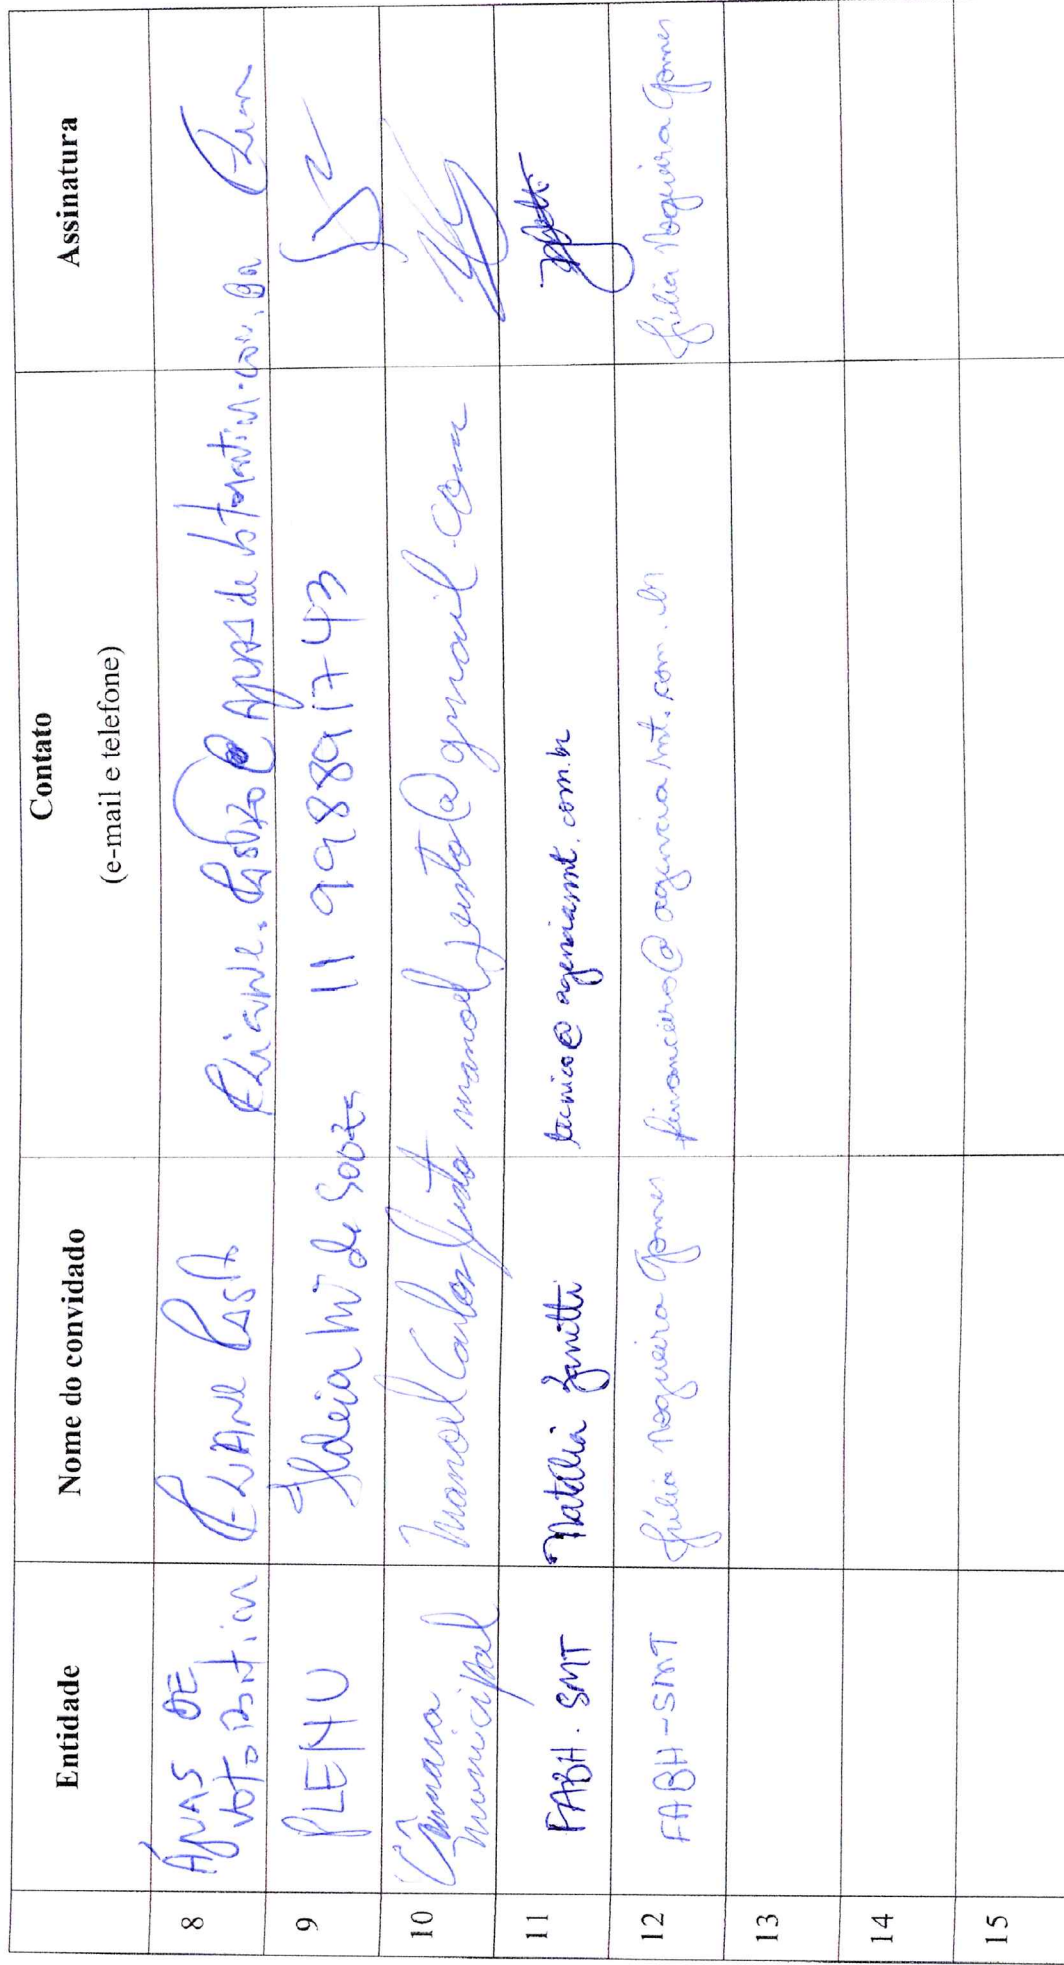 Entidade Nome do convidado Contato Assinatura
(e-mail e telefone)
8 ÁGUAS DE
Votorantim Eliane
9 PLENU de Souza 11 998891743
10 Câmara
Municipal Manoel Carlos Justo manoeljusto@gmail.com
11 FABH. SMT Natália Zanetti tecnico@agenciasmt.com.br
12 FABH-SMT Júlia Nogueira Gomes financeiro@agenciasmt.com.br Júlia Nogueira Gomes
13
14
15